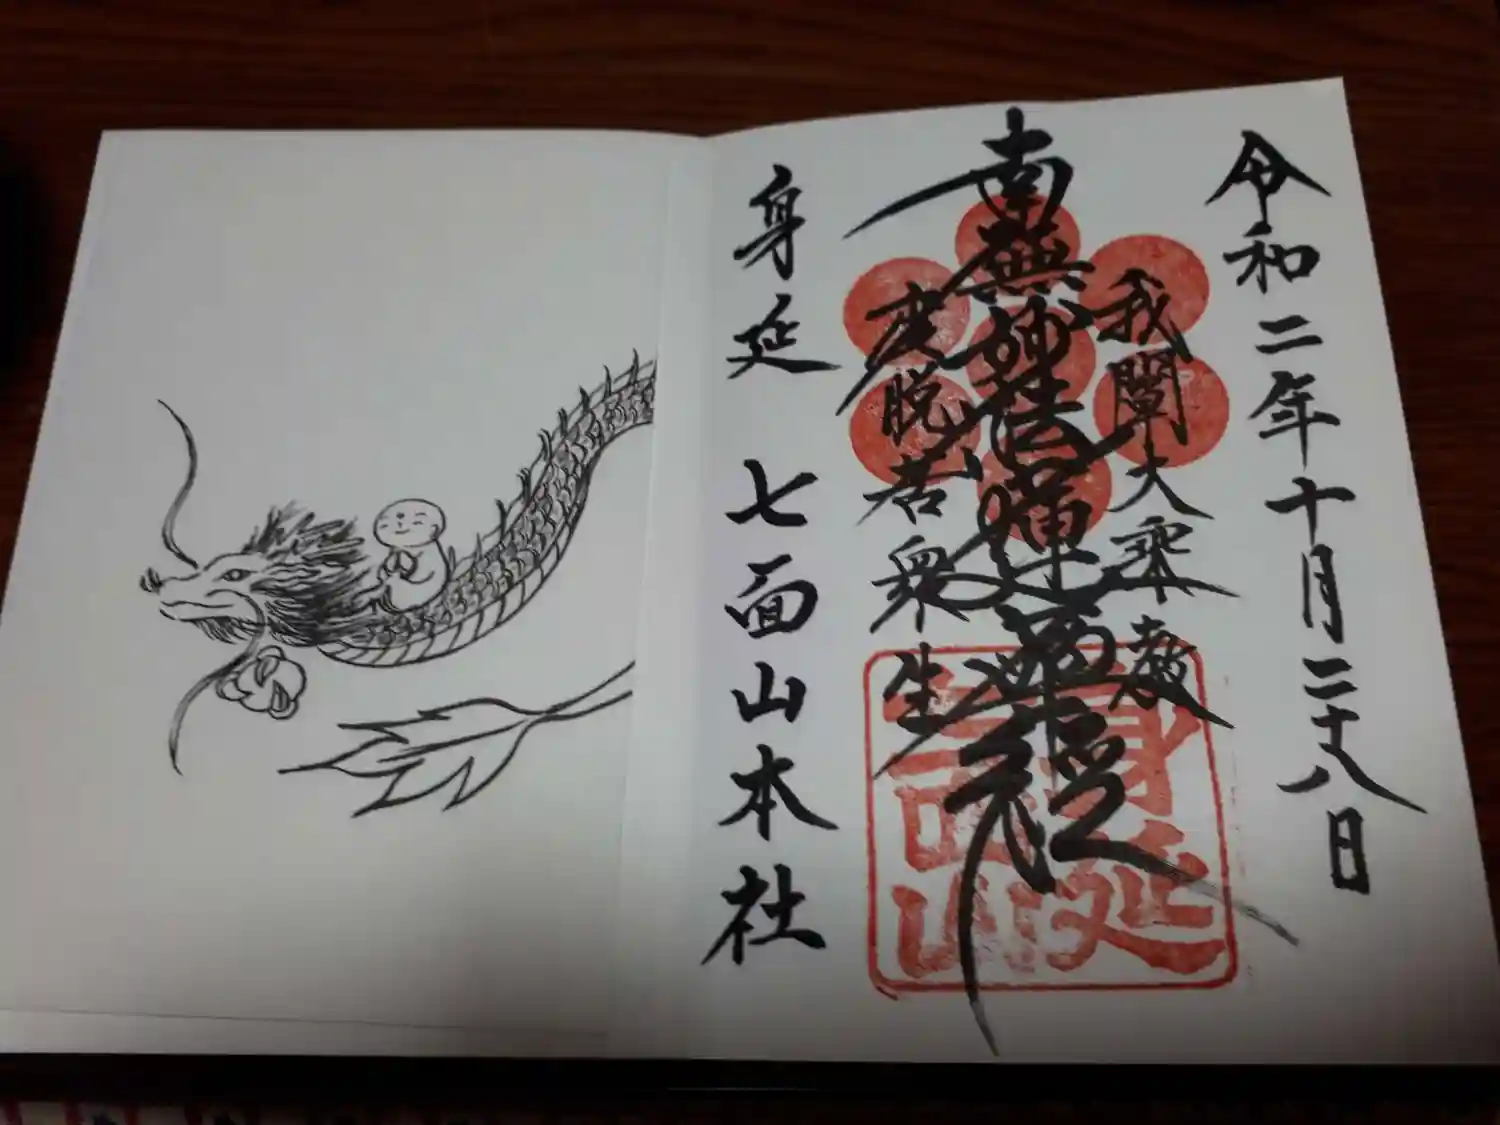 令和二年十月二十八日
我闡大乘教
南無妙法蓮華経
度脱苦衆生
身延七面山本社
身延
七面山